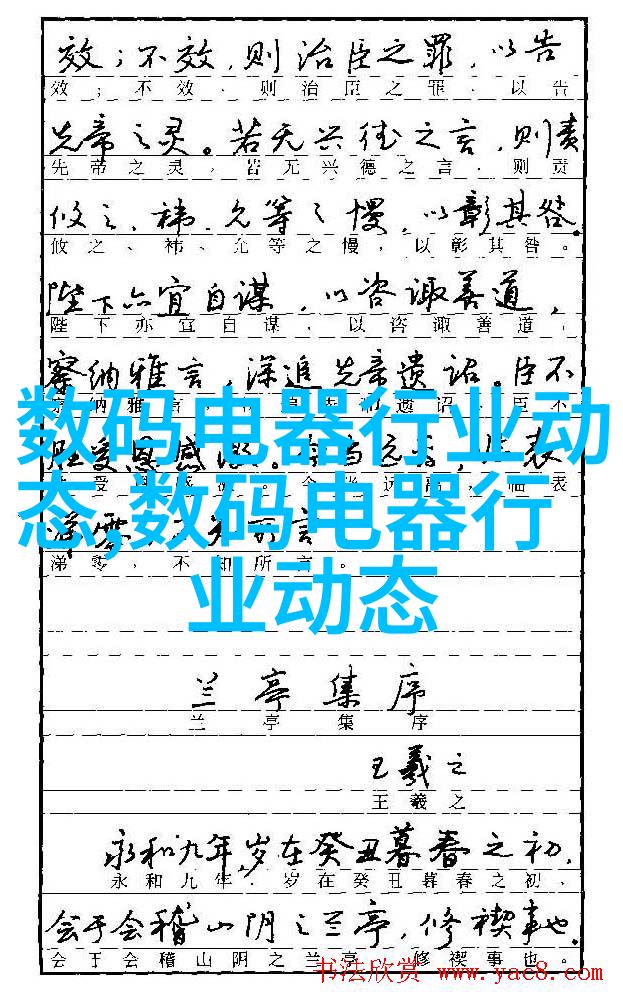 效；不效，则治臣之罪，以告
效；不效、则治臣之罪、以告
先帝之灵。若无兴德之言，则责
先帝之灵，若无兴德之言、则责
攸之、祎、允等之慢，以彰其咎。
攸之、祎、允等之慢，以彰其咎。
陛下亦宜自谋，以咨诹善道，
陛下亦宜自谋，以咨诹善道，
察纳雅言，深追先帝遗诏。臣不
纳雅言，帝遗诏、臣不
数码电器行业动
态,数码电器行
业动态
受恩感激。今当远离，临表
受 临表
涕零，不知所言
涕零，不知所言。
兰亭集序
兰亭集序
王羲之
王羲之
永和九年，岁在癸丑暮春之初，
永和九年．岁在癸丑暮春之初、
会于会稽山阴之兰亭，修禊事也．
会于会稽山阴之兰亭 修禊事也。
书法欣赏 www.yac8.com